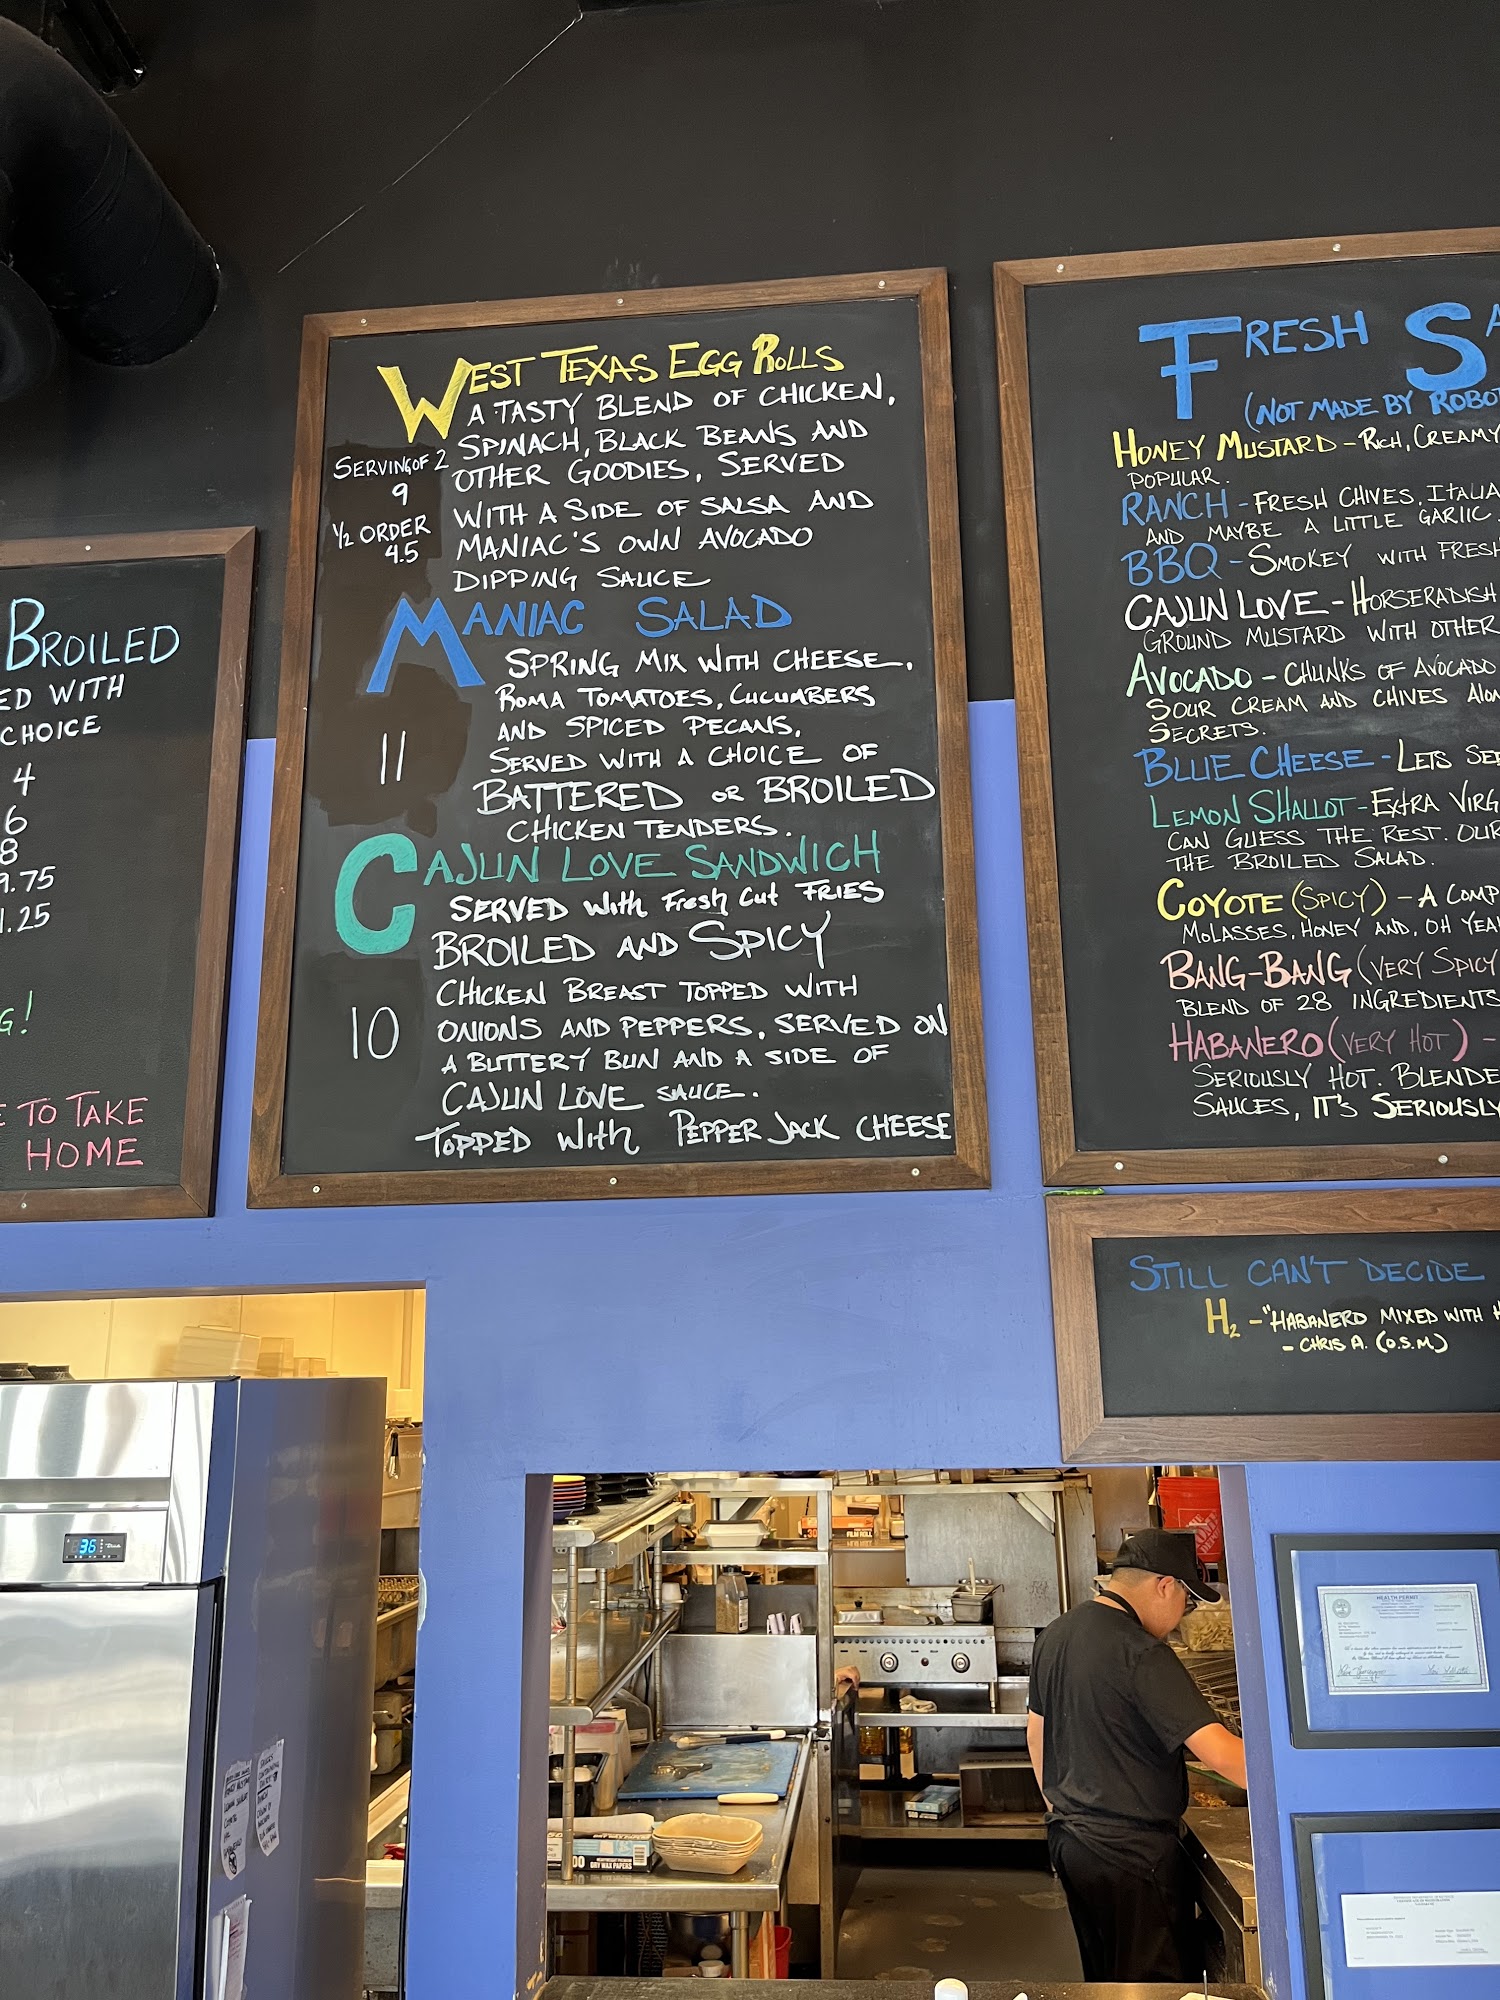 BROILED
ED WITH
CHOICE
4
6
8
9.75
1.25
G!
E TO TAKE
HOME
WEST TEXAS EGG ROLLS
A TASTY BLEND OF CHICKEN,
SPINACH, BLACK BEANS AND
OTHER GOODIES, SERVED
WITH A SIDE OF SALSA AND
MANIAC'S OWN AVOCADO
DIPPING SAUCE
SERVING OF 2
9
1/2 ORDER
4.5
MANIAC SALAD
SPRING MIX WITH CHEESE,
ROMA TOMATOES, CUCUMBERS
AND SPICED PECANS,
SERVED WITH A CHOICE OF
BATTERED OR BROILED
CHICKEN TENDERS.
11
CAJUN LOVE SANDWICH
SERVED With Fresh Cut FRIES
BROILED AND SPICY
CHICKEN BREAST TOPPED WITH
ONIONS AND PEPPERS, SERVED ON
A BUTTERY BUN AND A SIDE OF
CAJUN LOVE SAUCE.
TOPPED With PEPPER JACK CHEESE
10
FRESH SA
(NOT MADE BY ROBOT
HONEY MUSTARD - RICH, CREAMY
POPULAR.
RANCH - FRESH CHIVES, ITALIA
AND MAYBE A LITTLE GARLIC
BBQ - SMOKEY WITH FRESH
CAJUN LOVE - HORSERADISH
GROUND MUSTARD WITH OTHER
AVOCADO - CHUNKS OF AVOCADO
SOUR CREAM AND CHIVES Alon
SECRETS.
BLUE CHEESE - LETS SEE
LEMON SHALLOT - EXTRA VIRG
CAN GUESS THE REST. OUR
THE BROILED SALAD.
COYOTE (SPICY) - A COMP
MOLASSES, HONEY AND, OH YEA
BANG-BANG (VERY SPICY
BLEND OF 28 INGREDIENTS
HABANERO (VERY HOT) -
SERIOUSLY HOT. BLENDE
SAUCES, IT'S SERIOUSLY
STILL CAN'T DECIDE
H2 - "HABANERO MIXED WITH H
- CHRIS A. (O.S.M)
36
HEALTH PERMIT
FILM ROLL
DRY WAX PAPERS